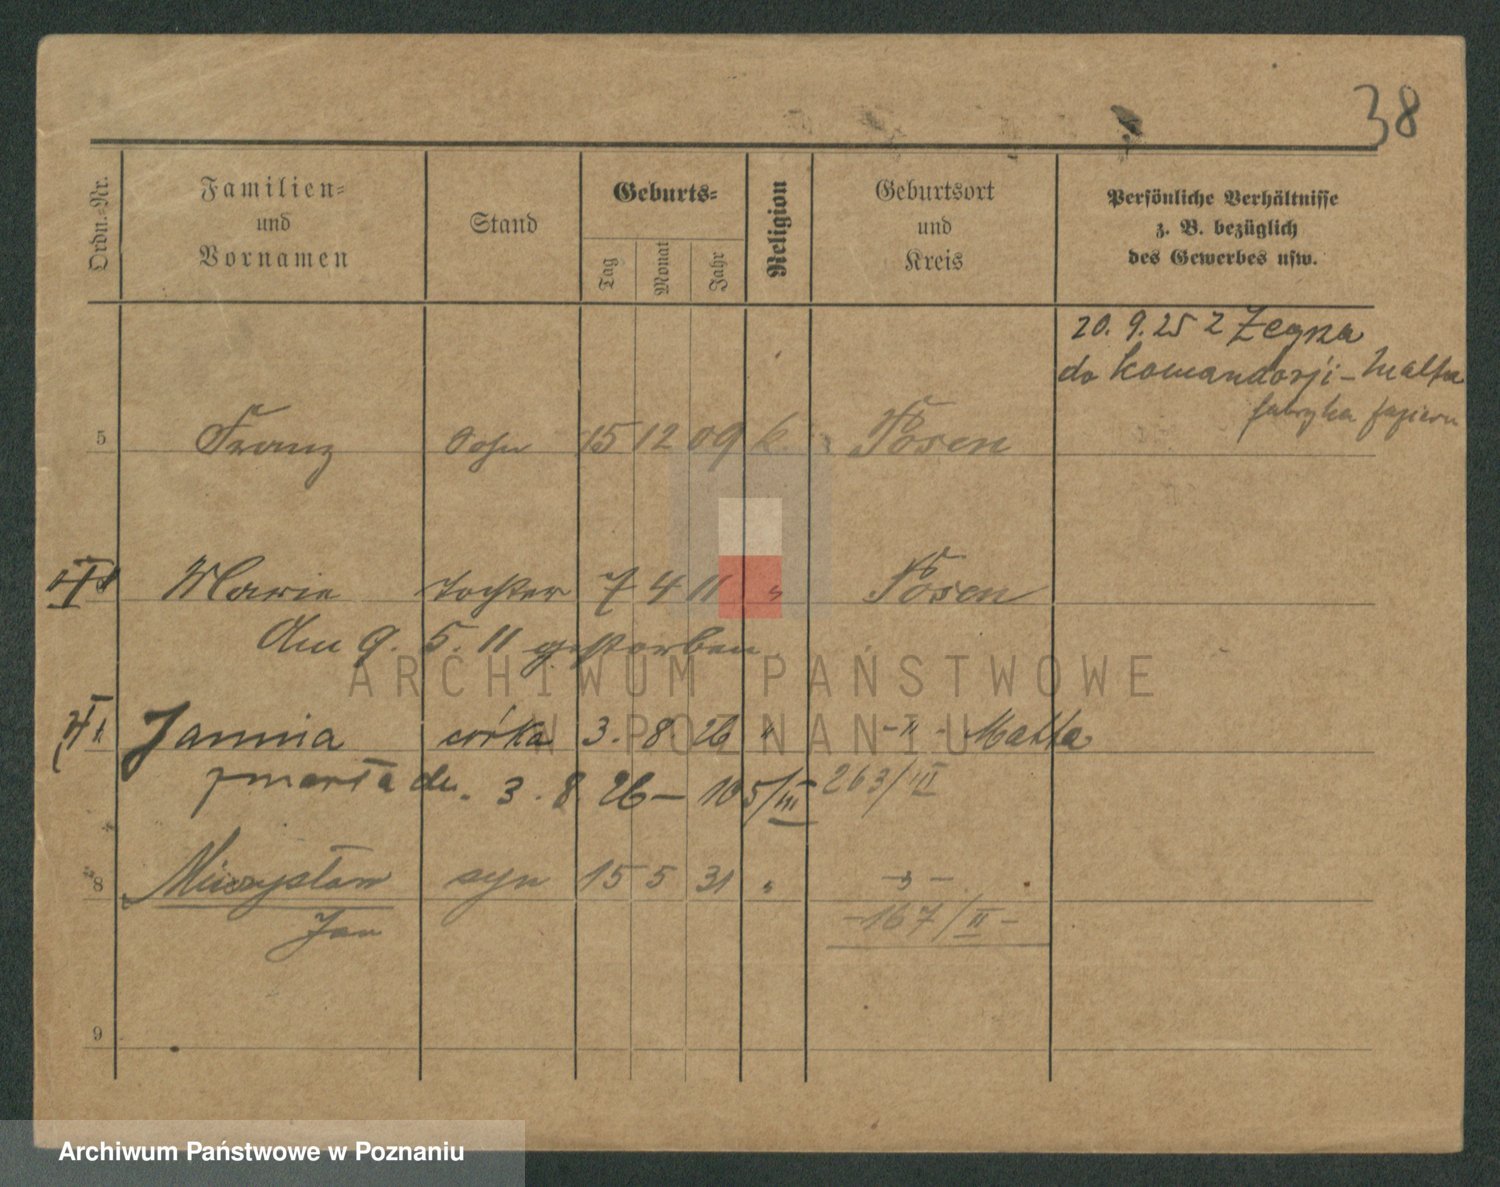 38
Ordn.=Nr.
Familien=
und
Vornamen
Stand
Geburts=
Tag
Monat
Jahr
Religion
Geburtsort
und
Kreis
Persönliche Verhältnisse
z. B. bezüglich
des Gewerbes usw.
20. 9. 25 z Zegrza
do komandorji - Malta
fabryka papieru
5 Franz Sohn 15 12 09 k. Posen
Marie Tochter 7 4 11 " Posen
Am 9. 5. 11 gestorben.
Janina córka 3. 8. 26 " -"- Malta
zmarła dn. 3. 8. 26 - 105/III 263/III
8 Mieczysław syn 15 5 31 " -"-
Jan -167/II-
9
ARCHIWUM PAŃSTWOWE
W POZNANIU
Archiwum Państwowe w Poznaniu